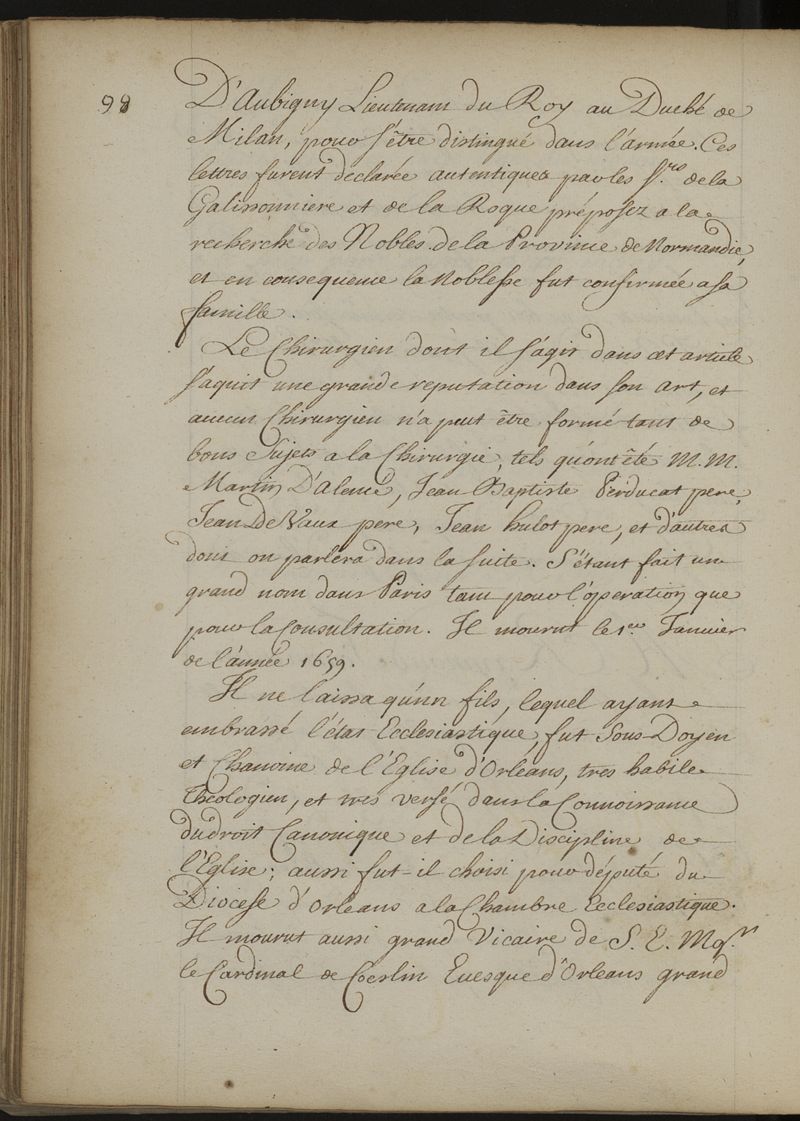 98
D'Aubigny Lieutenant du Roy au Duché de
Milan, pour s'être distingué dans l'armée. Ces
lettres furent declarée autentiques par les S.rs de la
Galissonniere et de la Roque préposez a la
recherche des Nobles de la Province de Normandie,
et en consequence la Noblesse fut confirmée a sa
famille.
Le Chirurgien dont il s'agit dans cet article
s'aquit une grande reputation dans son art, et
aucun Chirurgien n'a peut être formé tant de
bons Sujets a la Chirurgie, tels qu'ont été M.M.
Martin D'Alencé, Jean Baptiste Perducat pere,
Jean De Vaux pere, Jean hulot pere, et d'autres
dont on parlera dans la suite. S'étant fait un
grand nom dans Paris tant pour l'operation que
pour la Consultation. Il mourut le 1.er Janvier
de l'année 1659.
Il ne laissa qu'un fils, lequel ayant
embrassé l'état Ecclesiastique, fut Sous-Doyen
et Chanoine de l'Eglise d'Orleans, tres habile
Théologien, et tres versé dans la Connoissance
du droit Canonique et de la Discipline de
l'Eglise; aussi fut-il choisi pour député du
Diocese d'Orleans a la Chambre Ecclesiastique.
Il mourut aussi grand Vicaire de S. E. Mg.r
le Cardinal de Coeslin Evesque d'Orleans grand